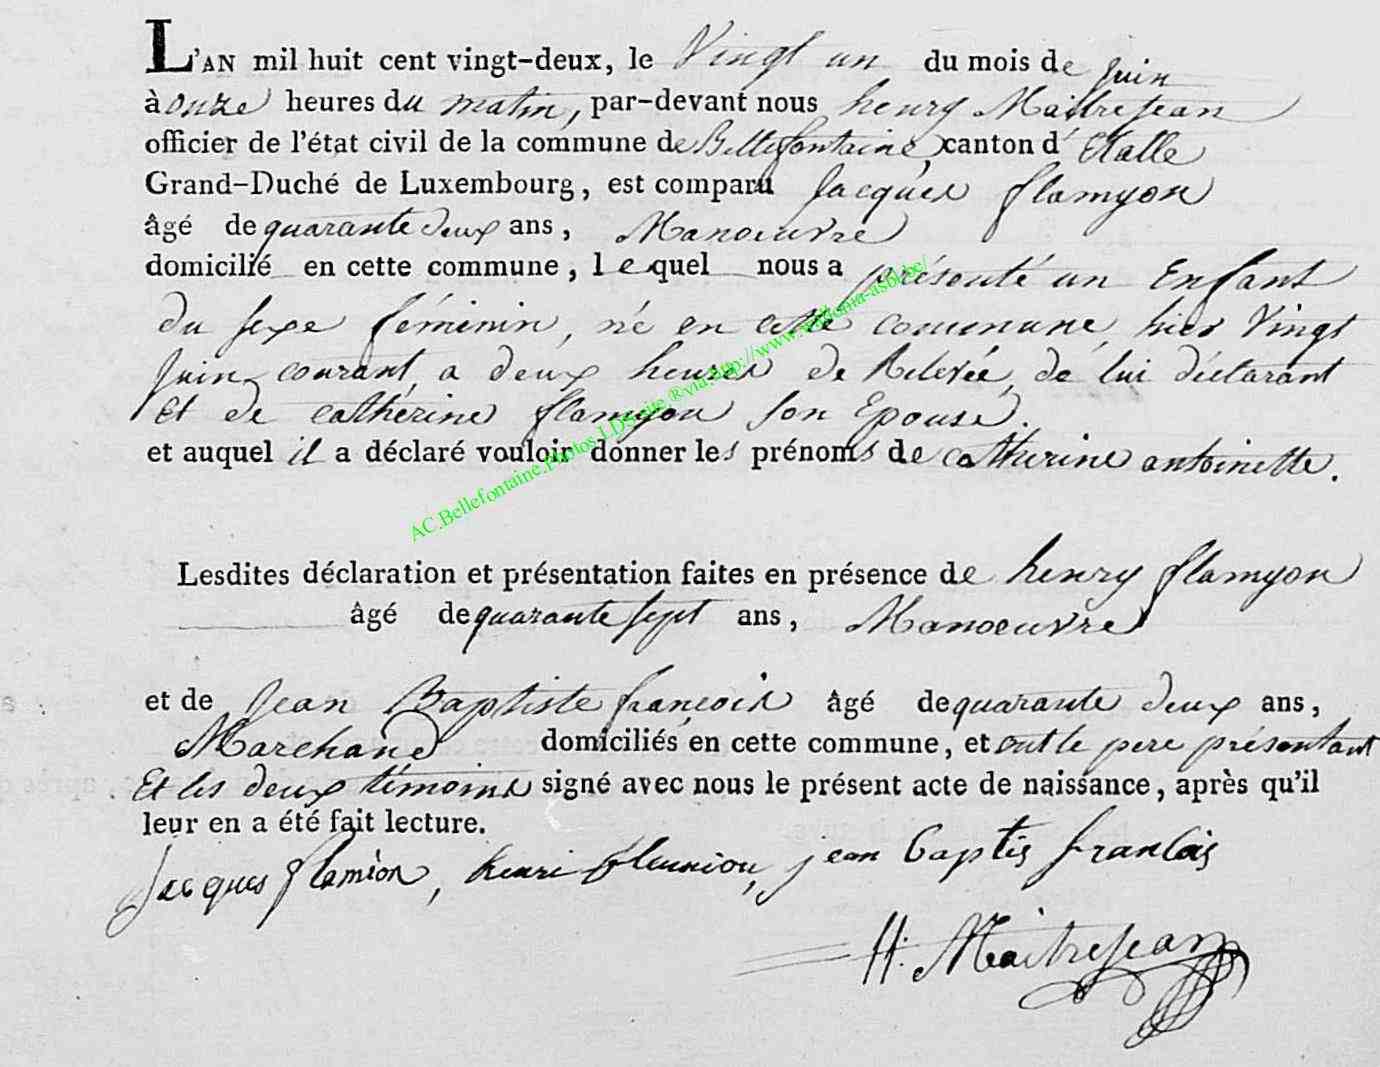 L'AN mil huit cent vingt-deux, le Vingt un du mois de juin
à onze heures du matin, par-devant nous henry Maitrejean
officier de l'état civil de la commune de Bellefontaine, canton d'Etalle
Grand-Duché de Luxembourg, est comparu Jacques flamyon
âgé de quarante deux ans, Manoeuvre
domicilié en cette commune, lequel nous a présenté un Enfant
du sexe féminin, né en cette commune, hier Vingt
juin courant, a deux heures de Relevée, de lui déclarant
Et de cathérine flamyon son Epouse.
et auquel il a déclaré vouloir donner les prénoms de catherine antoinette.
AC.Bellefontaine.Photos.LDS.site.®via.http://www.wallonia-asbl.be/
Lesdites déclaration et présentation faites en présence de henry flamyon
âgé de quarante sept ans, Manoeuvre
et de Jean Baptiste françois âgé de quarante deux ans,
Marchand domiciliés en cette commune, et ont le pere présentant
Et les deux témoins signé avec nous le présent acte de naissance, après qu'il
leur en a été fait lecture.
Jacques flamion, henri fleunion, jean baptis francois
H. Maitrejean